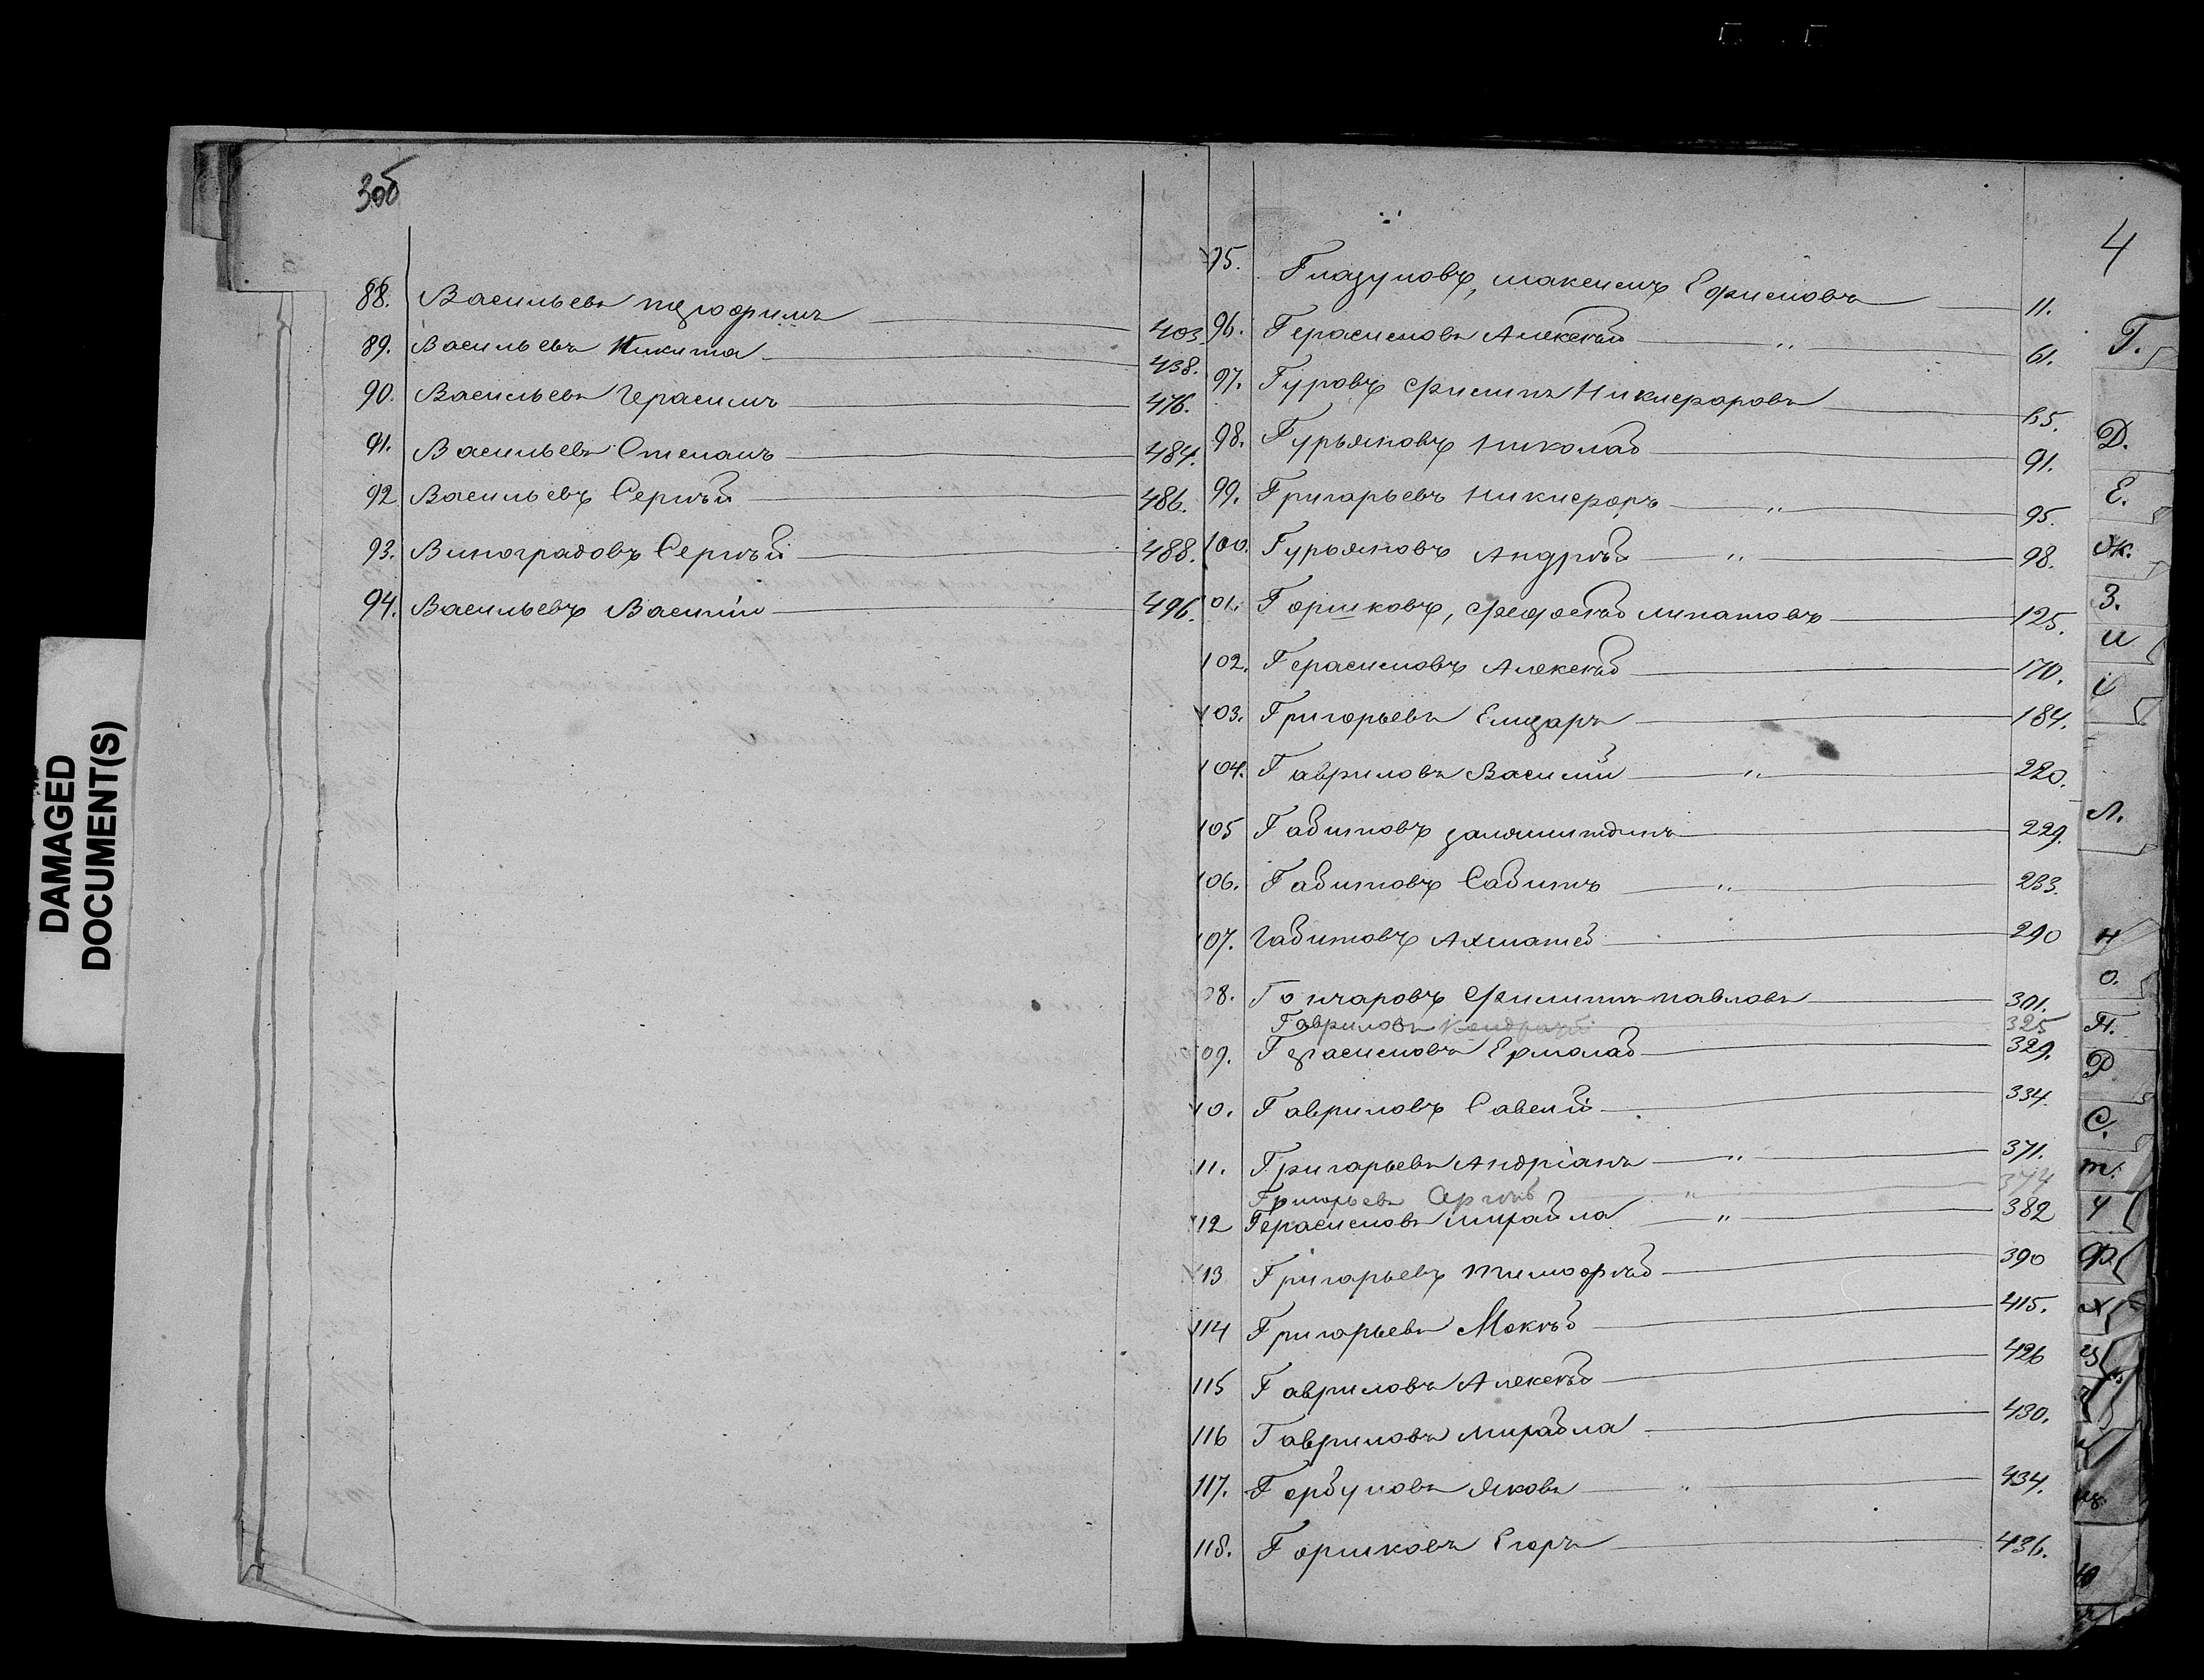 3об
88. Васильевъ Трофимъ 403.
89. Васильевъ Никита 438.
90. Васильевъ Герасимъ 476.
91. Васильевъ Степанъ 484.
92 Васильевъ Сергѣй 486.
93. Виноградовъ Сергѣй 488.
94. Васильевъ Василій 496.
4
95. Глазуновъ, Максимъ Ефимовъ 11.
96. Герасимовъ Алексѣй " 61.
97. Гуровъ Филипъ Никифаровъ 65.
98. Гурьяновъ Николай 91.
99. Григарьевъ Никифоръ " 95.
100. Гурьяновъ Андрѣй " 98.
01. Горшковъ, Федосѣй Липатовъ 125.
102. Герасимовъ Алексѣй 170.
103. Григорьевъ Елизаръ 184.
104. Гавриловъ Василий " 220.
105 Габитовъ 229.
106. Габитовъ Сабитъ " 233.
107. Габитовъ Ахматей 290
08. Гончаровъ Филиппъ Павловъ 301.
Гавриловъ Кондратій 325
09. Герасимовъ Ермолай 329.
10. Гавриловъ Савелій 334.
11. Григарьевъ Андріанъ " 371.
Григорьевъ Сергѣй " 374
12 Герасимовъ Михайла " 382
13 Григарьевъ Тимофѣй 390
114 Григарьевъ Мокѣй 415.
115 Гавриловъ Алексѣй 426
116 Гавриловъ Михайла 430.
117. Горбуновъ Яковъ " 434.
118. Горшковъ Егоръ 436.
Г.
Д.
Е.
Ж.
З.
И
І
Л.
Н
О.
П.
Р
С.
Т.
У
Ф
Х
Ц
Ю
DAMAGED
DOCUMENT(S)